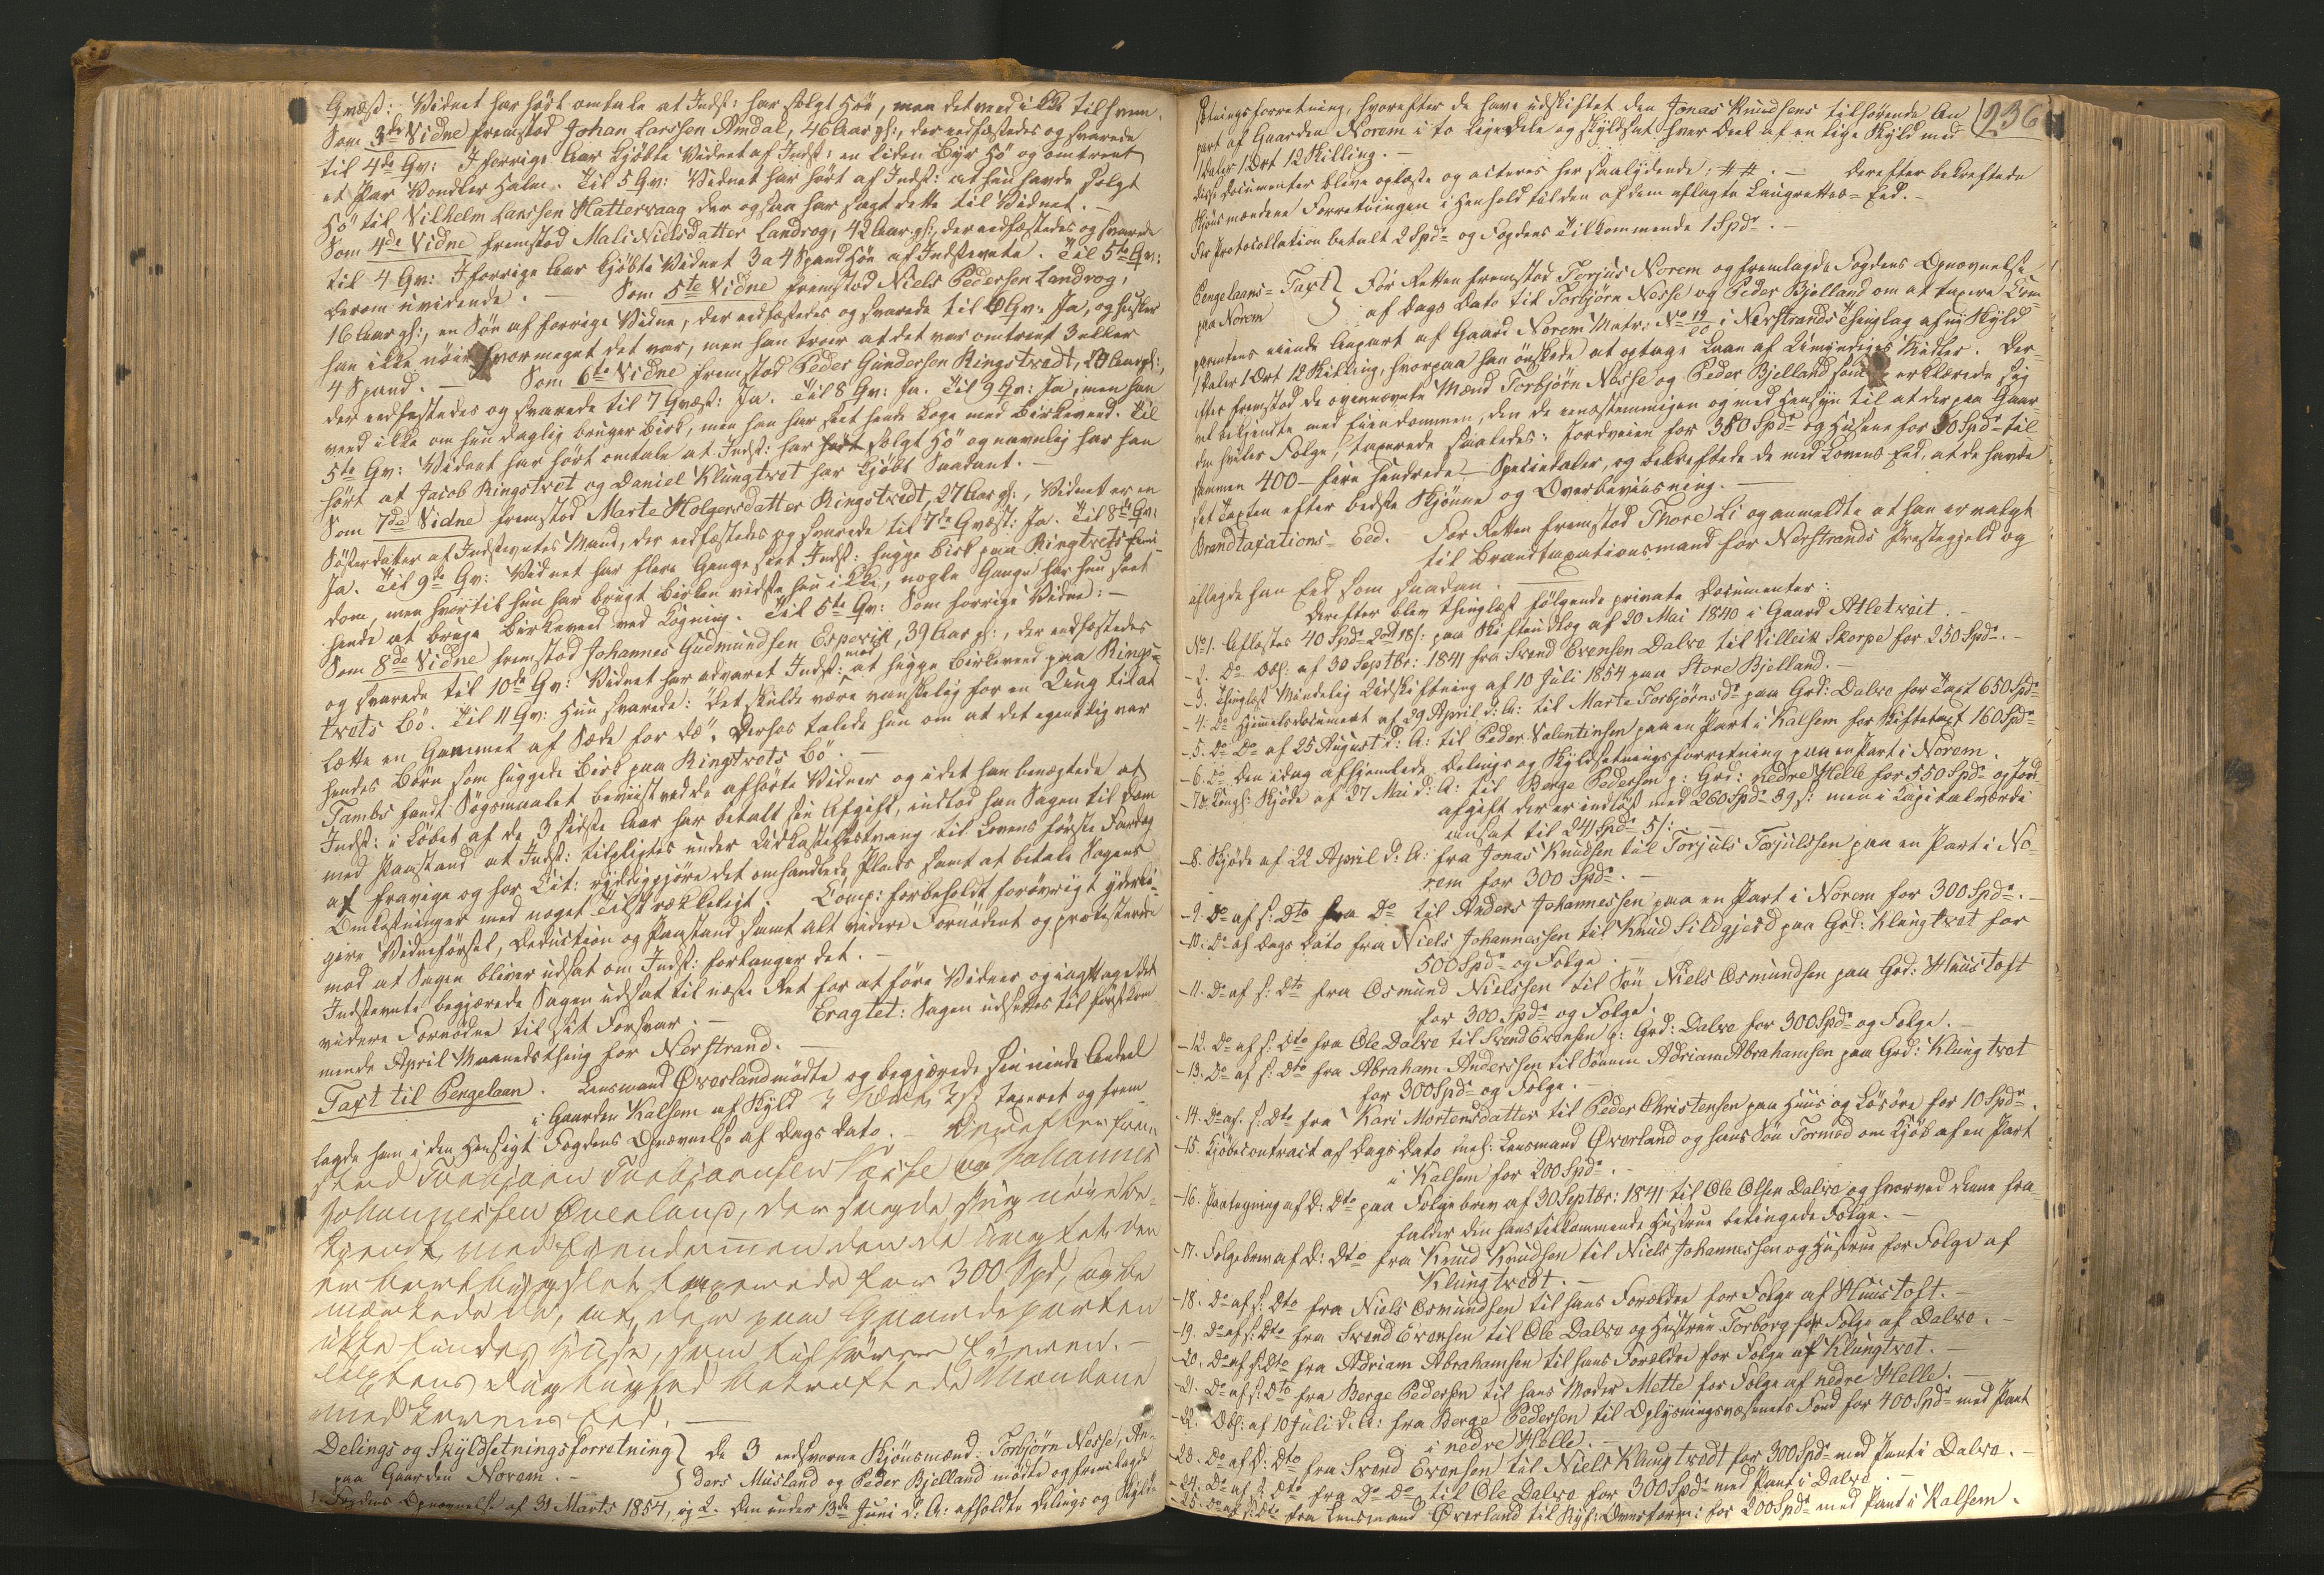 Qvæst: Vidnet har hørt omtale at Indst: har solgt Höe, men det veed ikke til hvem.
Som 3de Vidne fremstod Johan Larssen Amdal, 46 Aar gl:, der eedfæstedes og svarede
til 4de Qv: I forrige Aar kjøbte Vidnet af Indst: en liden Byr Hö og omtrent
et Par Vondler Halm. Til 5 Qv: Vidnet har hørt af Indst: at hun havde solgt
Hö til Vilhelm Larssen Hattervaag der ogsaa har sagt dette til Vidnet. –
Som 4de Vidne fremstod Mali Nielsdatter Landrog, 42 Aar gl:, der eedfæstedes og svarede
til 4 Qv: I forrige Aar kjøbte Vidnet 3 a 4 Spand Höe af Indstevnte. Til 5te Qv:
derom uvidende. – Som 5te Vidne fremstod Niels Pedersen Landrog,
16 Aar gl:, en Søn af forrige Vidne, der eedfæstedes og svarede til Qv: Ja, og husker
han ikke nöie hvormeget det var, men han troer at det var omtrent 3 eller
4 Spand. – Som 6te Vidne fremstod Peder Gundersen Ringstvedt, Aar gl:,
der eedfæstedes og svarede til 7 Qvæst: Ja. Til 8 Qv: Ja. Til 9 Qv: Ja, men han
veed ikke om hun daglig bruger Birk, men han har seet hende koge med Birkeved. Til
5te Qv: Vidnet har hört omtale at Indst: har solgt Hö og navnlig har han
hørt at Jacob Ringstvet og Daniel Klungtvet har kjöbt Saadant. –
Som 7de Vidne fremstod Marte Holgersdatter Ringstvedt, 27 Aar gl:, Vidnet er en
Søsterdatter af Indstevntes Mand, der eedfæstedes og svarede til 7de Qvæst: Ja. Til 8de Qv:
Ja. Til 9de Qv: Vidnet har flere Gange seet Indst: hugge Birk paa Ringtvets Eien-
dom, men hvortil hun har brugt Birken vidste hun ikke, nogle Gange har hun seet
hende at bruge Birkeved ved Kogning. Til 5te Qv: Som forrige Vidne: –
Som 8de Vidne fremstod Johannes Gudmundsen Espevik, 39 Aar gl:, der eedfæstedes
og svarede til 10de Qv: Vidnet har advaret Indst: mod at hugge Birkeved paa Rings-
tvets Bö. Til 11 Qv: Hun svarede: "det skulde være vanskelig for en Ting til at
lette en Gammel af Sæde for dö". Derhos talede hun om at det egentlig var
hendes Börn som huggede Birk paa Ringtvets Bö. –
Tambs fandt Søgsmaalet beviist ved de afhørte Vidner og idet han benægtede at
Indst: i Løbet af de 3 sidste Aar har betalt sin Afgift, indlod han Sagen til Dom
med Paastand at Indst: tilpligtes under Udkastelsestvang til Lovens første Fardag
at fravige og for Cit: ryddiggjøre det omhandlede Plads samt at betale Sagens
Omkostninger med noget Tilstrækkeligt. Comp: forbeholdt forøvrigt yderli-
gere Vidneførsel, Deduction og Paastand samt alt videre Fornødent og protesterede
mod at Sagen bliver udsat om Indst: forlanger det. –
Indstevnte begjærede Sagen udsat til næste Ret for at føre Vidner og iagttage det
videre Fornødne til sit Forsvar. – Eragtet: Sagen udsættes til førstkom-
mende April Maanedsthing for Nerstrand. –
Taxt til Pengelaan. Lensmand Øverland mødte og begjærede sin eiende Andeel
i Gaarden Kalsem af Skyld taxeret og frem-
lagde han i den Hensigt Fogdens Opnævnelse af Dags Dato. – Derefter frem
stod Torbjørn Torbjørnsen Nesse og Johannes
Johannessen Øverland, der sagde sig nøie be-
kjendt med Eiendommen den de
er bortbygslet taxerede for 300 Spd, og be
mærkede de, at der paa Gaardeparten
ikke findes Huse, som tilhører Eieren. –
Taxtens Rigtighed bekræftede Mændene
med Lovens Eed. –
Delings og Skyldsetningsforretning } De 3 eedsvorne Skjønsmænd: Torbjörn Nesse, An-
paa Gaarden Norem. – } ders Musland og Peder Bjelland mødte og fremlagde
1 Fogdens Opnævnelse af 31 Marts 1854, og 2. Den under 13de Juni d: A: afholdte Delings og Skyld-
236
setningsforretning, hvorefter de have udskiftet den Jonas Knudsens tilhørende An
part af Gaarden Norem i to lige Dele og skyldsat hver Deel af en lige Skyld med
1 Daler 1 Ort 12 Skilling. –
Disse Documenter bleve oplæste og acteres her saalydende: ##. – Derefter bekreftede
Skjønsmændene Forretningen i Henhold til den af dem aflagte Laugrettes-Eed. –
Før Protocollation betalt 2 Spdr og Fogdens Tilkommende 1 Spdr. –
Pengelaans-Taxt } For Retten fremstod Torjus Norem og fremlagde Fogdens Opnævnelse
paa Norem } af Dags Dato til Torbjörn Nesse og Peder Bjelland om at taxere Com-
parentens eiende Anpart af Gaard Norem Matr: No 19/20 i Nerstrands Thinglag af ny Skyld
1 Daler 1 Ort 12 Skilling, hvorpaa han ønskede at optage Laan af Umyndiges Midler. Der-
efter fremstod de ovennævnte Mænd Torbjörn Nesse og Peder Bjelland som erklærede sig
vel bekjendte med Eiendommen, den de eenstemmigen og med Hensyn til at der paa Gaar-
den hviler Folge, taxerede saaledes: Jordveien for 350 Spdr og Husene for 50 Spdr til-
sammen 400 – fire Hundrede – Speciedaler, og bekræftede de med Lovens Eed, at de havde
sat Taxten efter bedste Skjönne og Overbeviisning. –
Brandtaxations-Eed. For Retten fremstod Thore Li og anmeldte at han er valgt
til Brandtaxationsmand for Nerstrands Prestegjeld og
aflagde han Eed som saadan. –
Derefter blev thinglæst følgende private Documenter:
No 1. Aflæstes 40 Spdr 2 ort 18 s: paa Skifteudlæg af 20 Mai 1840 i Gaard Atletveit. –
- 2. Do Obl: af 30 Septbr: 1841 fra Svend Evensen Dalve til Villeik Skorpe for 250 Spdr. –
- 3. Thinglæst Mindelig Udskiftning af 10 Juli 1854 paa Store Bjelland. –
- 4. Do Hjemmelsdocument af 29 April d: A: til Marte Torbjörnsdr paa Grd: Dalve for Taxt 650 Spdr
- 5. Do Do af 25 August d: A: til Peder Valentinsen paa en Part i Kalsem for Skiftetaxt 160 Spdr
- 6. Do Den idag afhjemlede Delings og Skyldsetningsforretning paa en Part i Norem.
- 7. Kongl: Skjøde af 27 Mai d: A: til Berge Pedersen p: Grd: nedre Helle for 550 Spdr og Jord
afgift der er indløst med 260 Spdr 89 s: men i Capitalværdi
ansat til 241 Spdr 5 s: –
- 8. Skjøde af 22 April d: A: fra Jonas Knudsen til Torjuls Torjulssen paa en Part i No-
rem for 300 Spdr. –
- 9. Do af s: Dto fra Do til Anders Johannessen paa en Part i Norem for 300 Spdr. –
- 10. Do af Dags Dato fra Niels Johannessen til Knud Sildgjerd paa Grd: Klungtvet for
500 Spdr og Folge. –
- 11. Do af s: Dto fra Osmund Nielssen til Søn Niels Osmundsen paa Grd: Huustoft
for 300 Spdr og Folge.
- 12. Do af s: Dto fra Ole Dalve til Svend Evensen p: Grd: Dalve for 300 Spdr og Folge. –
- 13. Do af s: Dto fra Abraham Anderssen til Sønnen Adriam Abrahamsen paa Grd: Klungtvet
for 300 Spdr og Folge. –
- 14. Do af s: Dto fra Kari Mortensdatter til Peder Christensen paa Huus og Løsøre for 10 Spdr.
- 15. Kjøbecontract af Dags Dato mel: Lensmand Øverland og hans Søn Tormod om Kjøb af en Part
i Kalsem for 200 Spdr. –
- 16. Paategning af D: Dto paa Folgebrev af 30 Septbr: 1841 til Ole Olsen Dalve og hvorved denne fra-
falder den hans tilkommende Hustrue betingede Folge. –
- 17. Folgebrev af D: Dto fra Knud Knudsen til Niels Johannessen og Hustrue for Folge af
Klungtvedt. –
- 18. Do af s: Dto fra Niels Osmundsen til hans Forældre for Folge af Huustoft. –
- 19. Do af s: Dto fra Svend Evensen til Ole Dalve og Hustrue Torborg for Folge af Dalve. –
- 20. Do af s: Dto fra Adriam Abrahamsen til hans Forældre for Folge af Klungtvet. –
- 21. Do af s: Dto fra Berge Pedersen til hans Moder Mette for Folge af nedre Helle. –
- 22. Obl: af 10 Juli d. A: fra Berge Pedersen til Oplysningsvæsenets Fond for 400 Spdr med Pant
i nedre Helle. –
- 23. Do af D: Dto fra Svend Evensen til Niels Klungtvedt for 300 Spdr med Pant i Dalve. –
- 24. Do af s: Dto fra Do Do til Ole Dalve for 300 Spdr med Pant i Dalve. –
- 25. Do af s: Dto fra Lensmand Øverland til Ryf: Overform: for 200 Spdr med Pant i Kalsem.